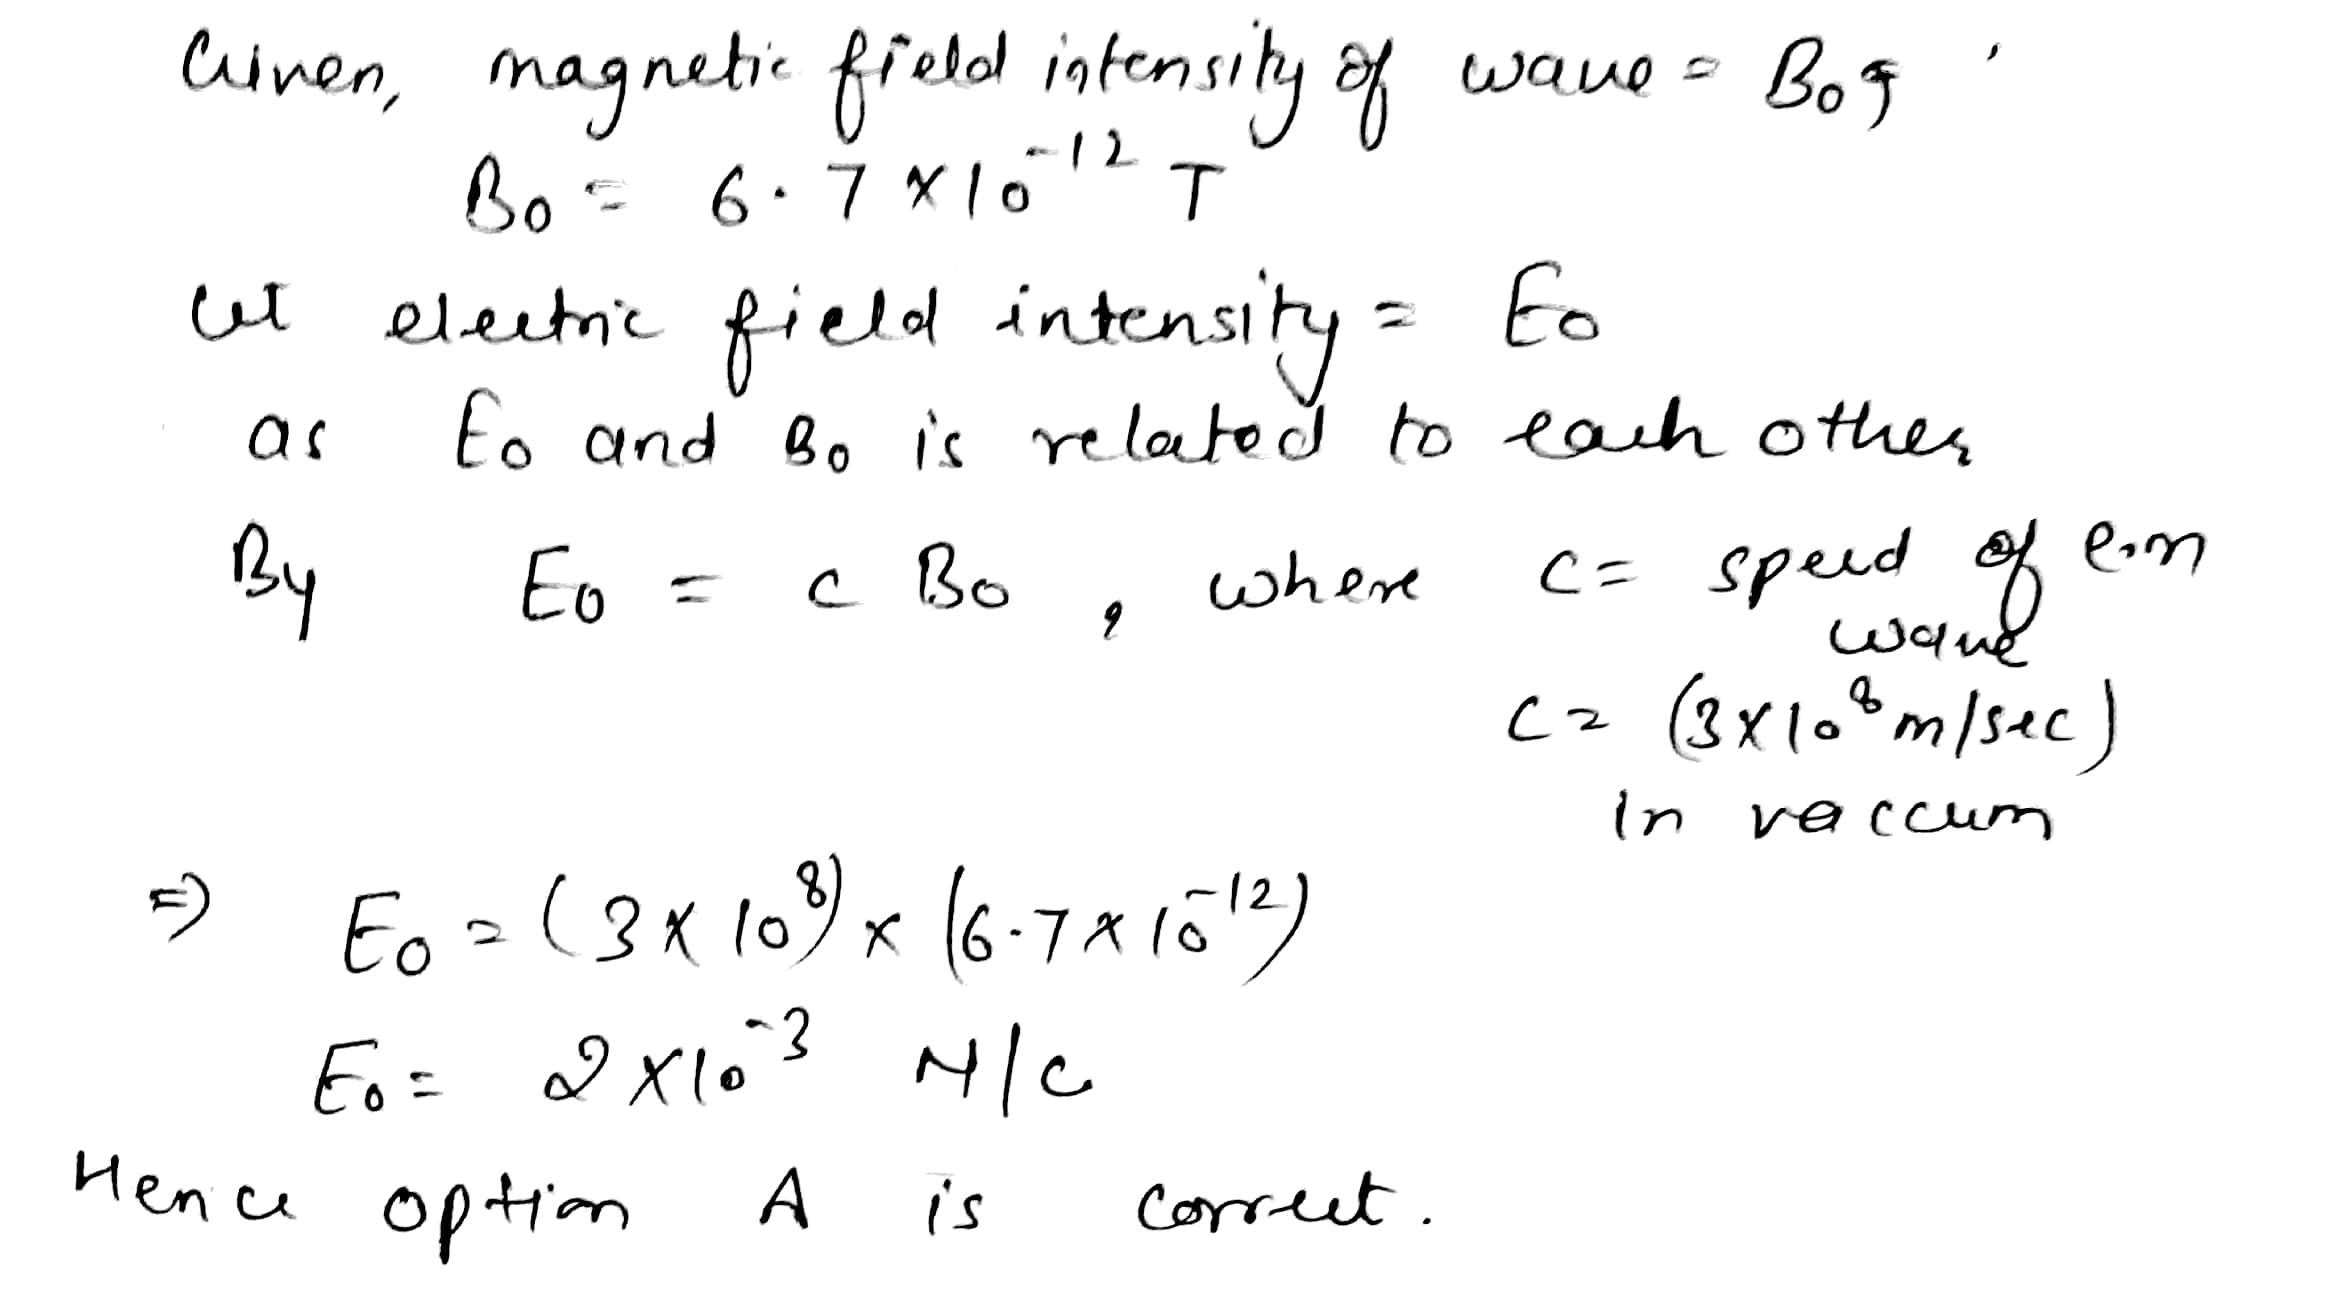 Given, magnetic field intensity of wave = B₀,
B₀ = 6.7 × 10⁻¹² T
Let electric field intensity = E₀
as E₀ and B₀ is related to each other
By E₀ = c B₀, where c = speed of e.m
wave
c = (3×10⁸ m/sec)
in vaccum
⇒ E₀ = (3 × 10⁸) × (6.7 × 10⁻¹²)
E₀ = 2 × 10⁻³ N/C
Hence option A is correct.